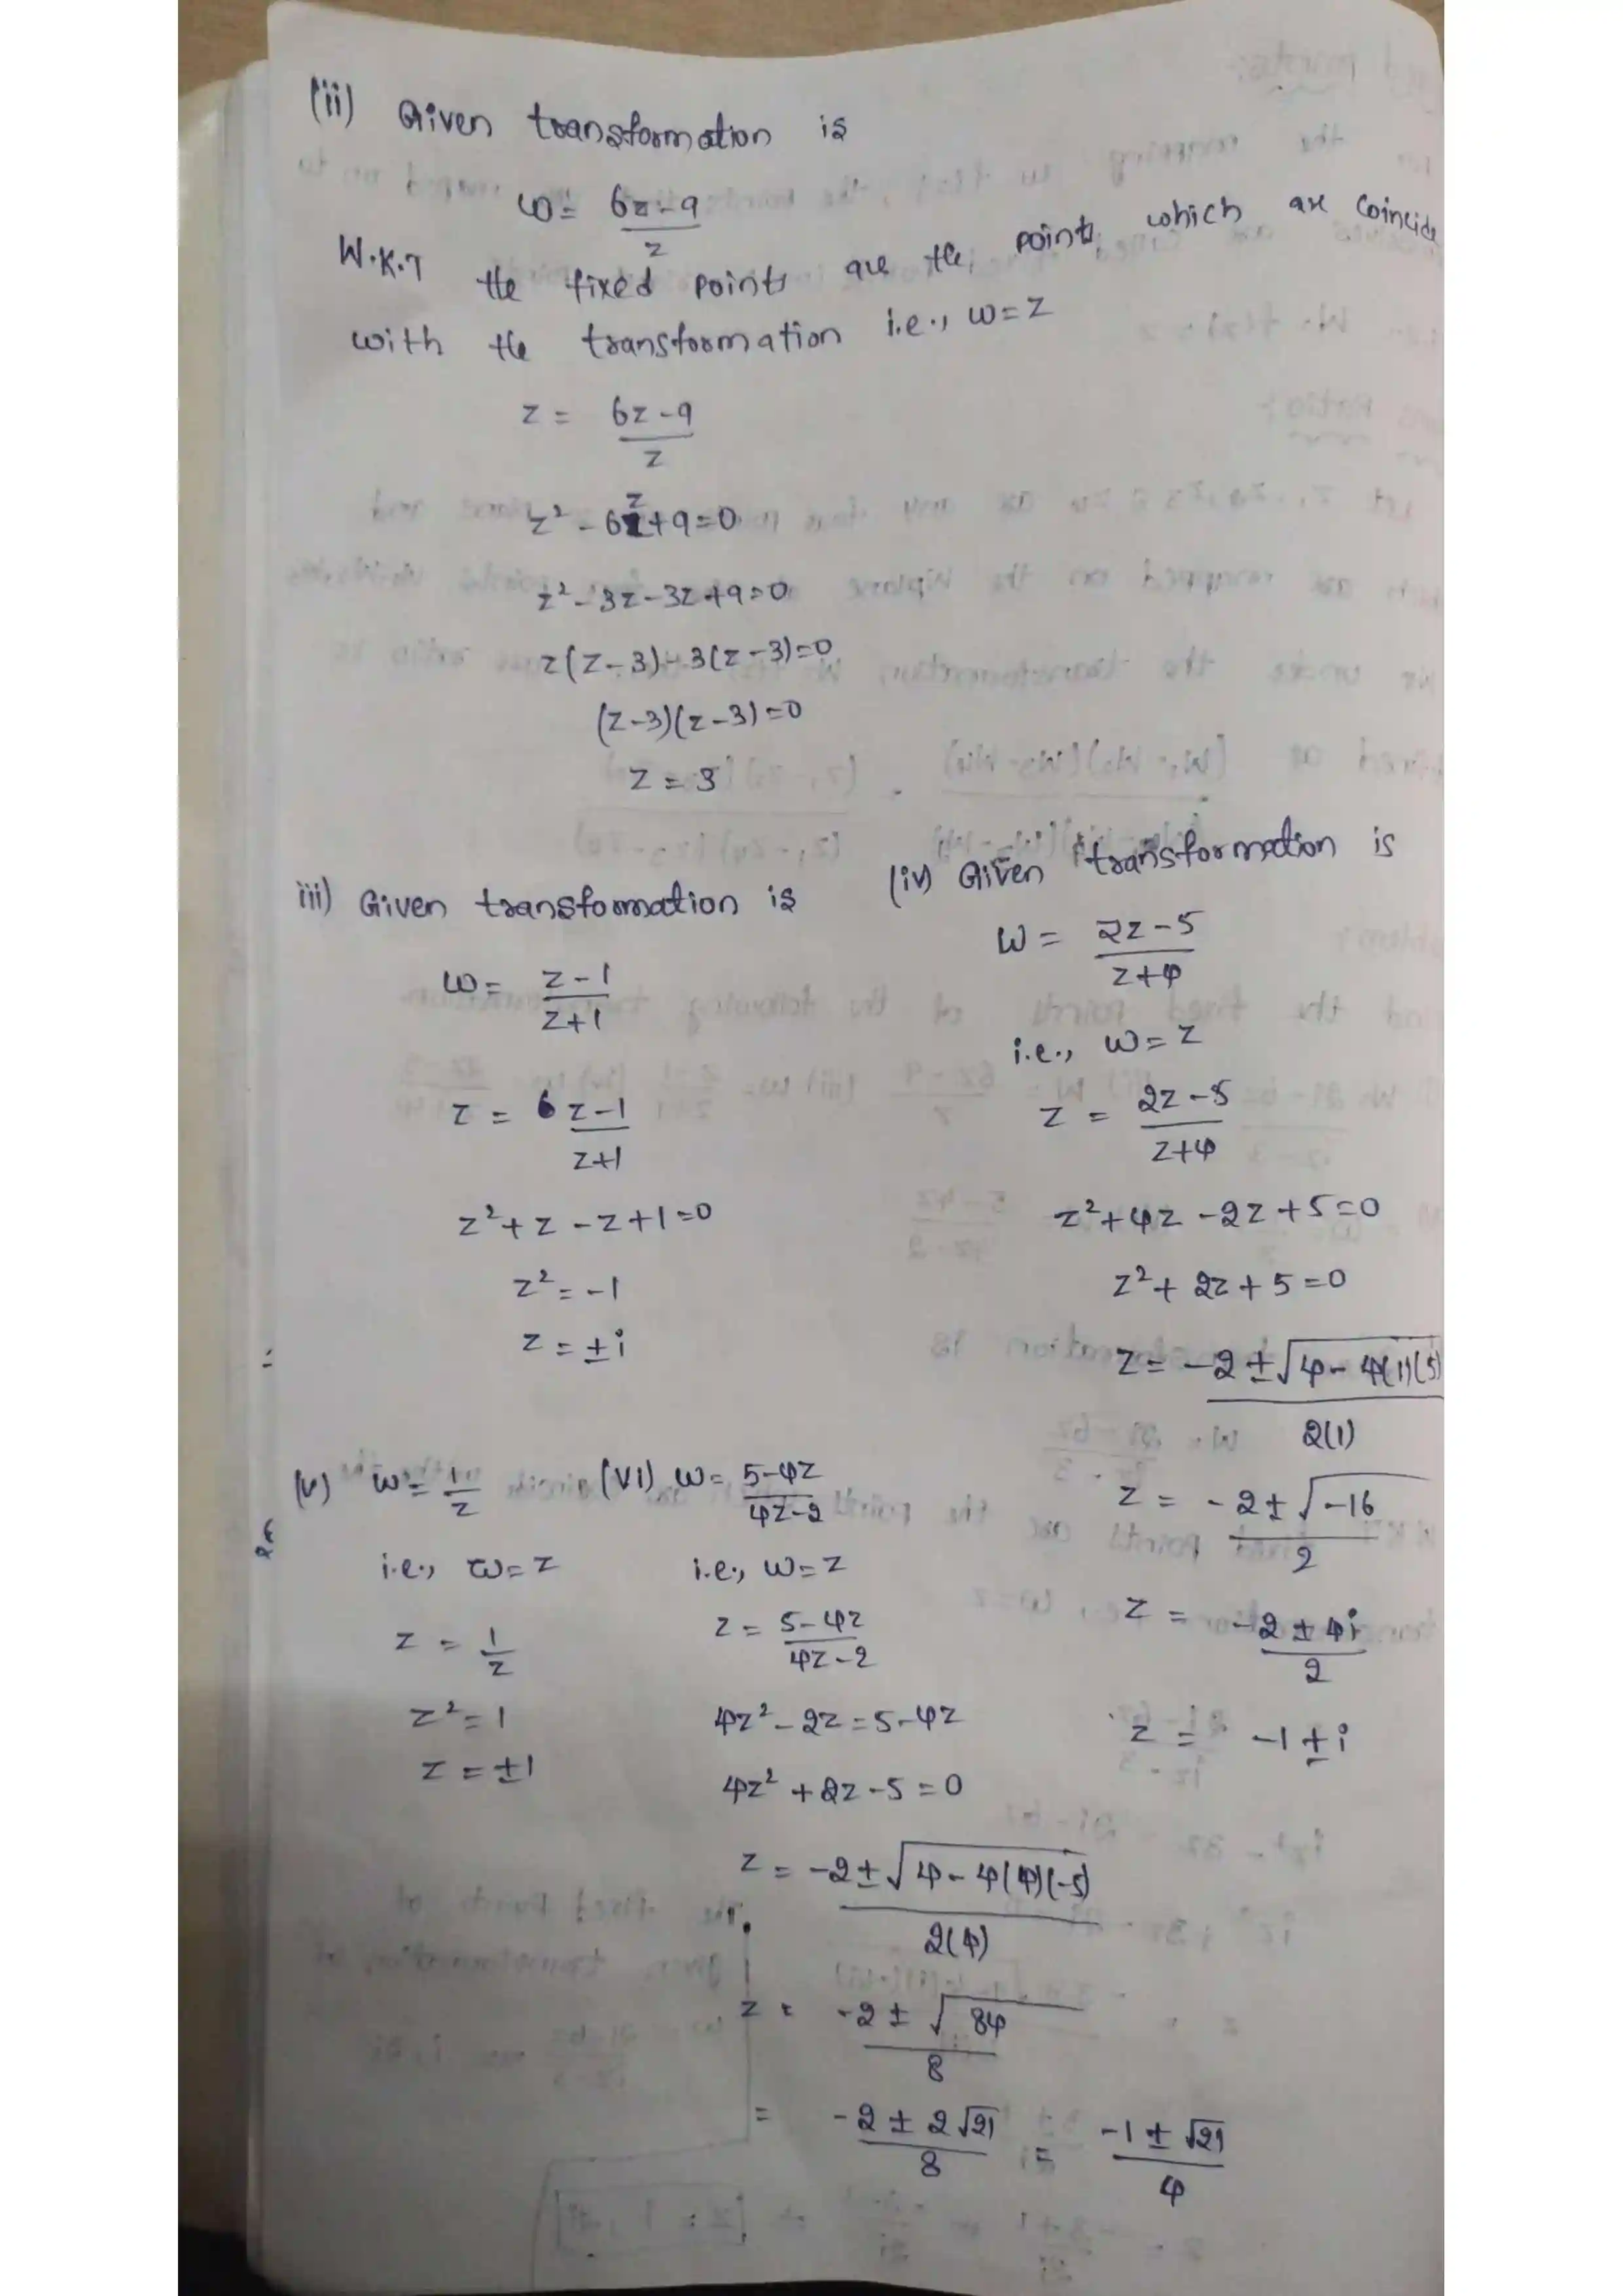 (ii) Given transformation is
w = (6z-9)/z
W.K.T the fixed points are the points which are coincide
with the transformation i.e., w=z
z = (6z-9)/z
z²-6z+9=0
z²-3z-3z+9=0
z(z-3)-3(z-3)=0
(z-3)(z-3)=0
z=3
iii) Given transformation is
w = (z-1)/(z+1)
z = 6 (z-1)/(z+1)
z²+z-z+1=0
z²=-1
z=±i
(iv) Given transformation is
w = (2z-5)/(z+4)
i.e., w=z
z = (2z-5)/(z+4)
z²+4z-2z+5=0
z²+2z+5=0
z = (-2±√(4-4(1)(5)))/2(1)
z = (-2±√-16)/2
z = (-2±4i)/2
z = -1±i
(v) w = 1/z
i.e., w=z
z = 1/z
z²=1
z=±1
(vi) w = (5-4z)/(4z-2)
i.e., w=z
z = (5-4z)/(4z-2)
4z²-2z=5-4z
4z²+2z-5=0
z = (-2±√(4-4(4)(-5)))/2(4)
z = (-2±√84)/8
= (-2±2√21)/8 = (-1±√21)/4